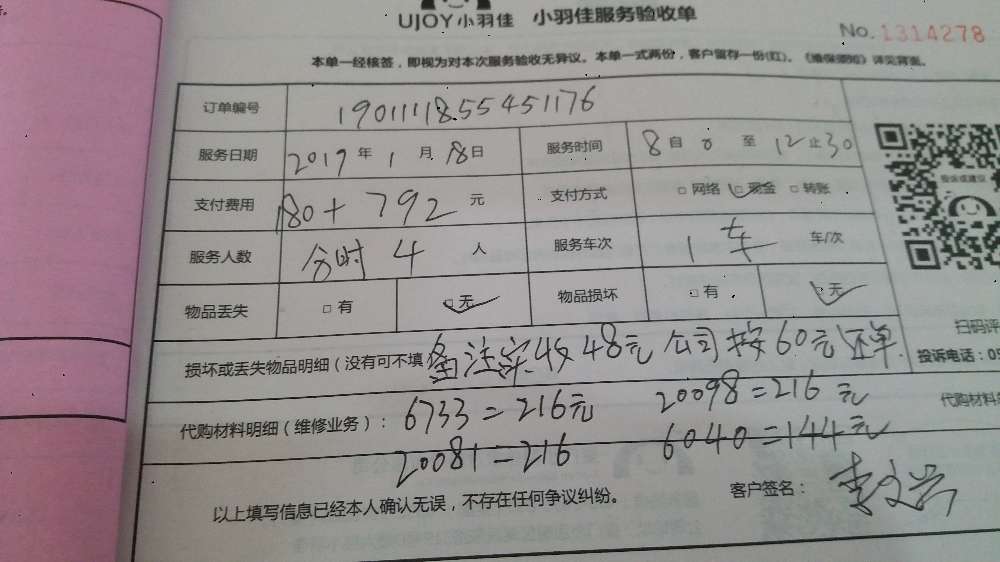 UJOY小羽佳 小羽佳服务验收单
No. 1314278
本单一经核签，即视为对本次服务验收无异议。本单一式两份，客户留存一份(红)。《维保须知》详见背面。
订单编号 19011118.55451176
服务日期 2019年1月18日 服务时间 8自0至12止30
支付费用 180+792元 支付方式 □网络 □现金 □转账
服务人数 分时4人 服务车次 1车 车/次
物品丢失 □有 □无 物品损坏 □有 □无
投诉或建议
扫码评
损坏或丢失物品明细（没有可不填 备注实收48元公司按60元还单.
投诉电话：05
代购材料明细（维修业务）： 6733=216元 20098=216元
代购材料
20081=216 6040=144元
以上填写信息已经本人确认无误，不存在任何争议纠纷。 客户签名：